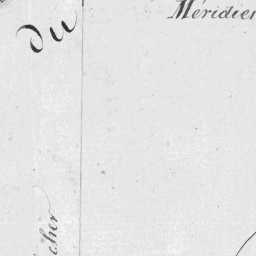 du
Méridien
cher